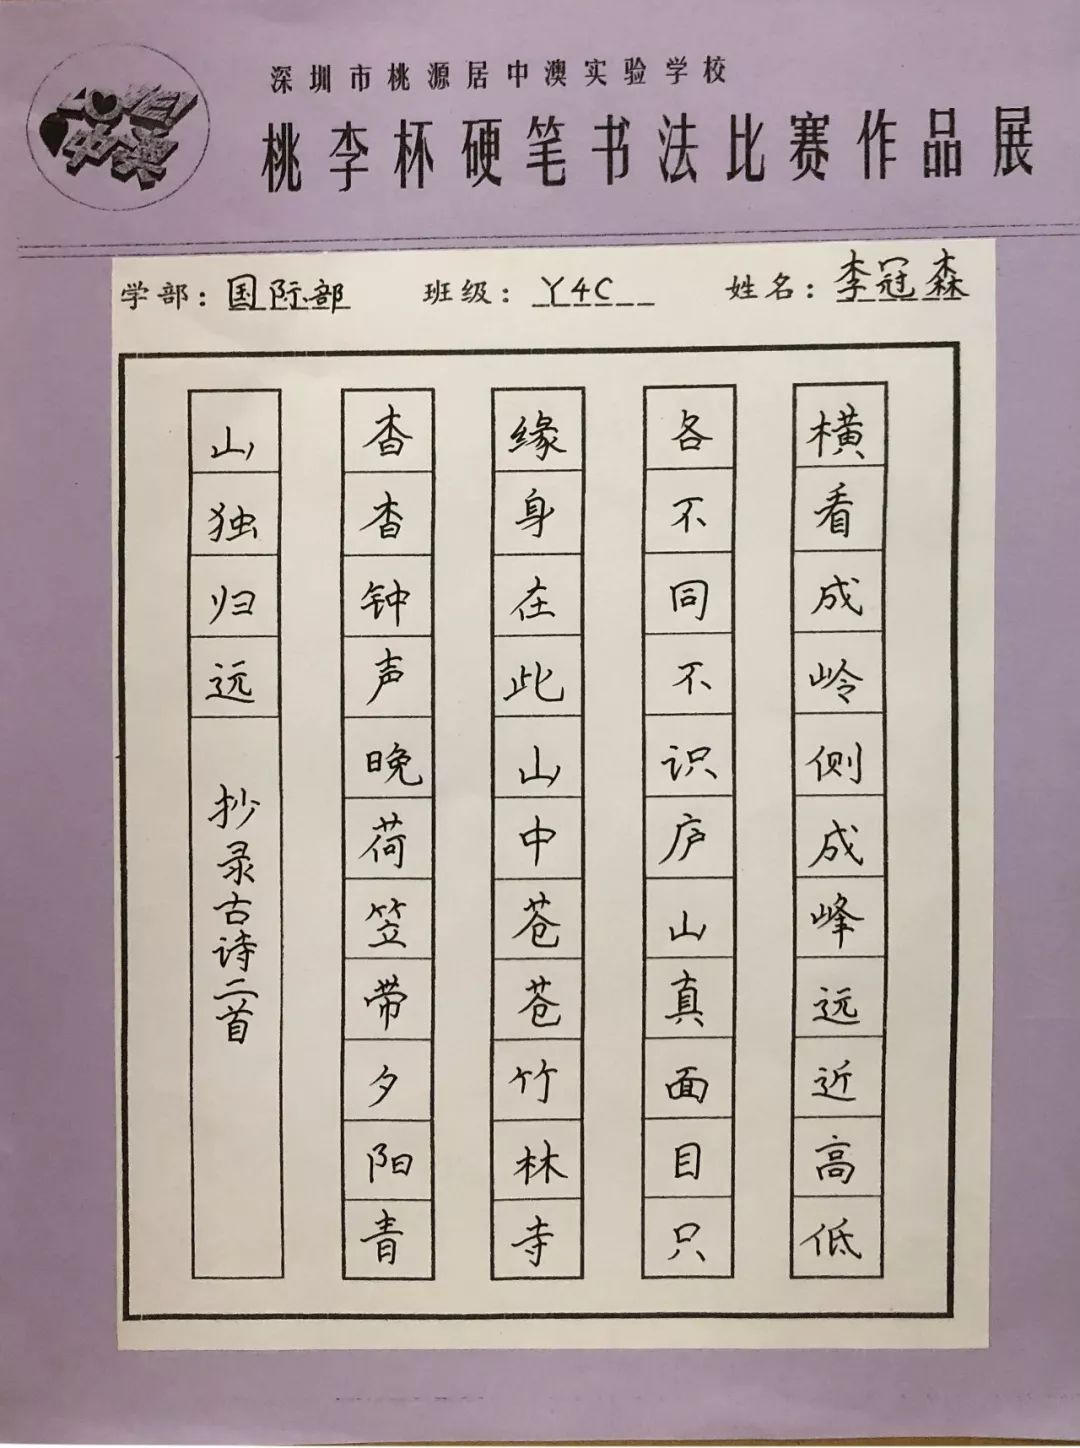 深圳市桃源居中澳实验学校
桃李杯硬笔书法比赛作品展
中澳
学部：国际部 班级：Y4C 姓名：李冠森
横看成岭侧成峰远近高低
各不同不识庐山真面目只
缘身在此山中苍苍竹林寺
杳杳钟声晚荷笠带夕阳青
山独归远
抄录古诗二首